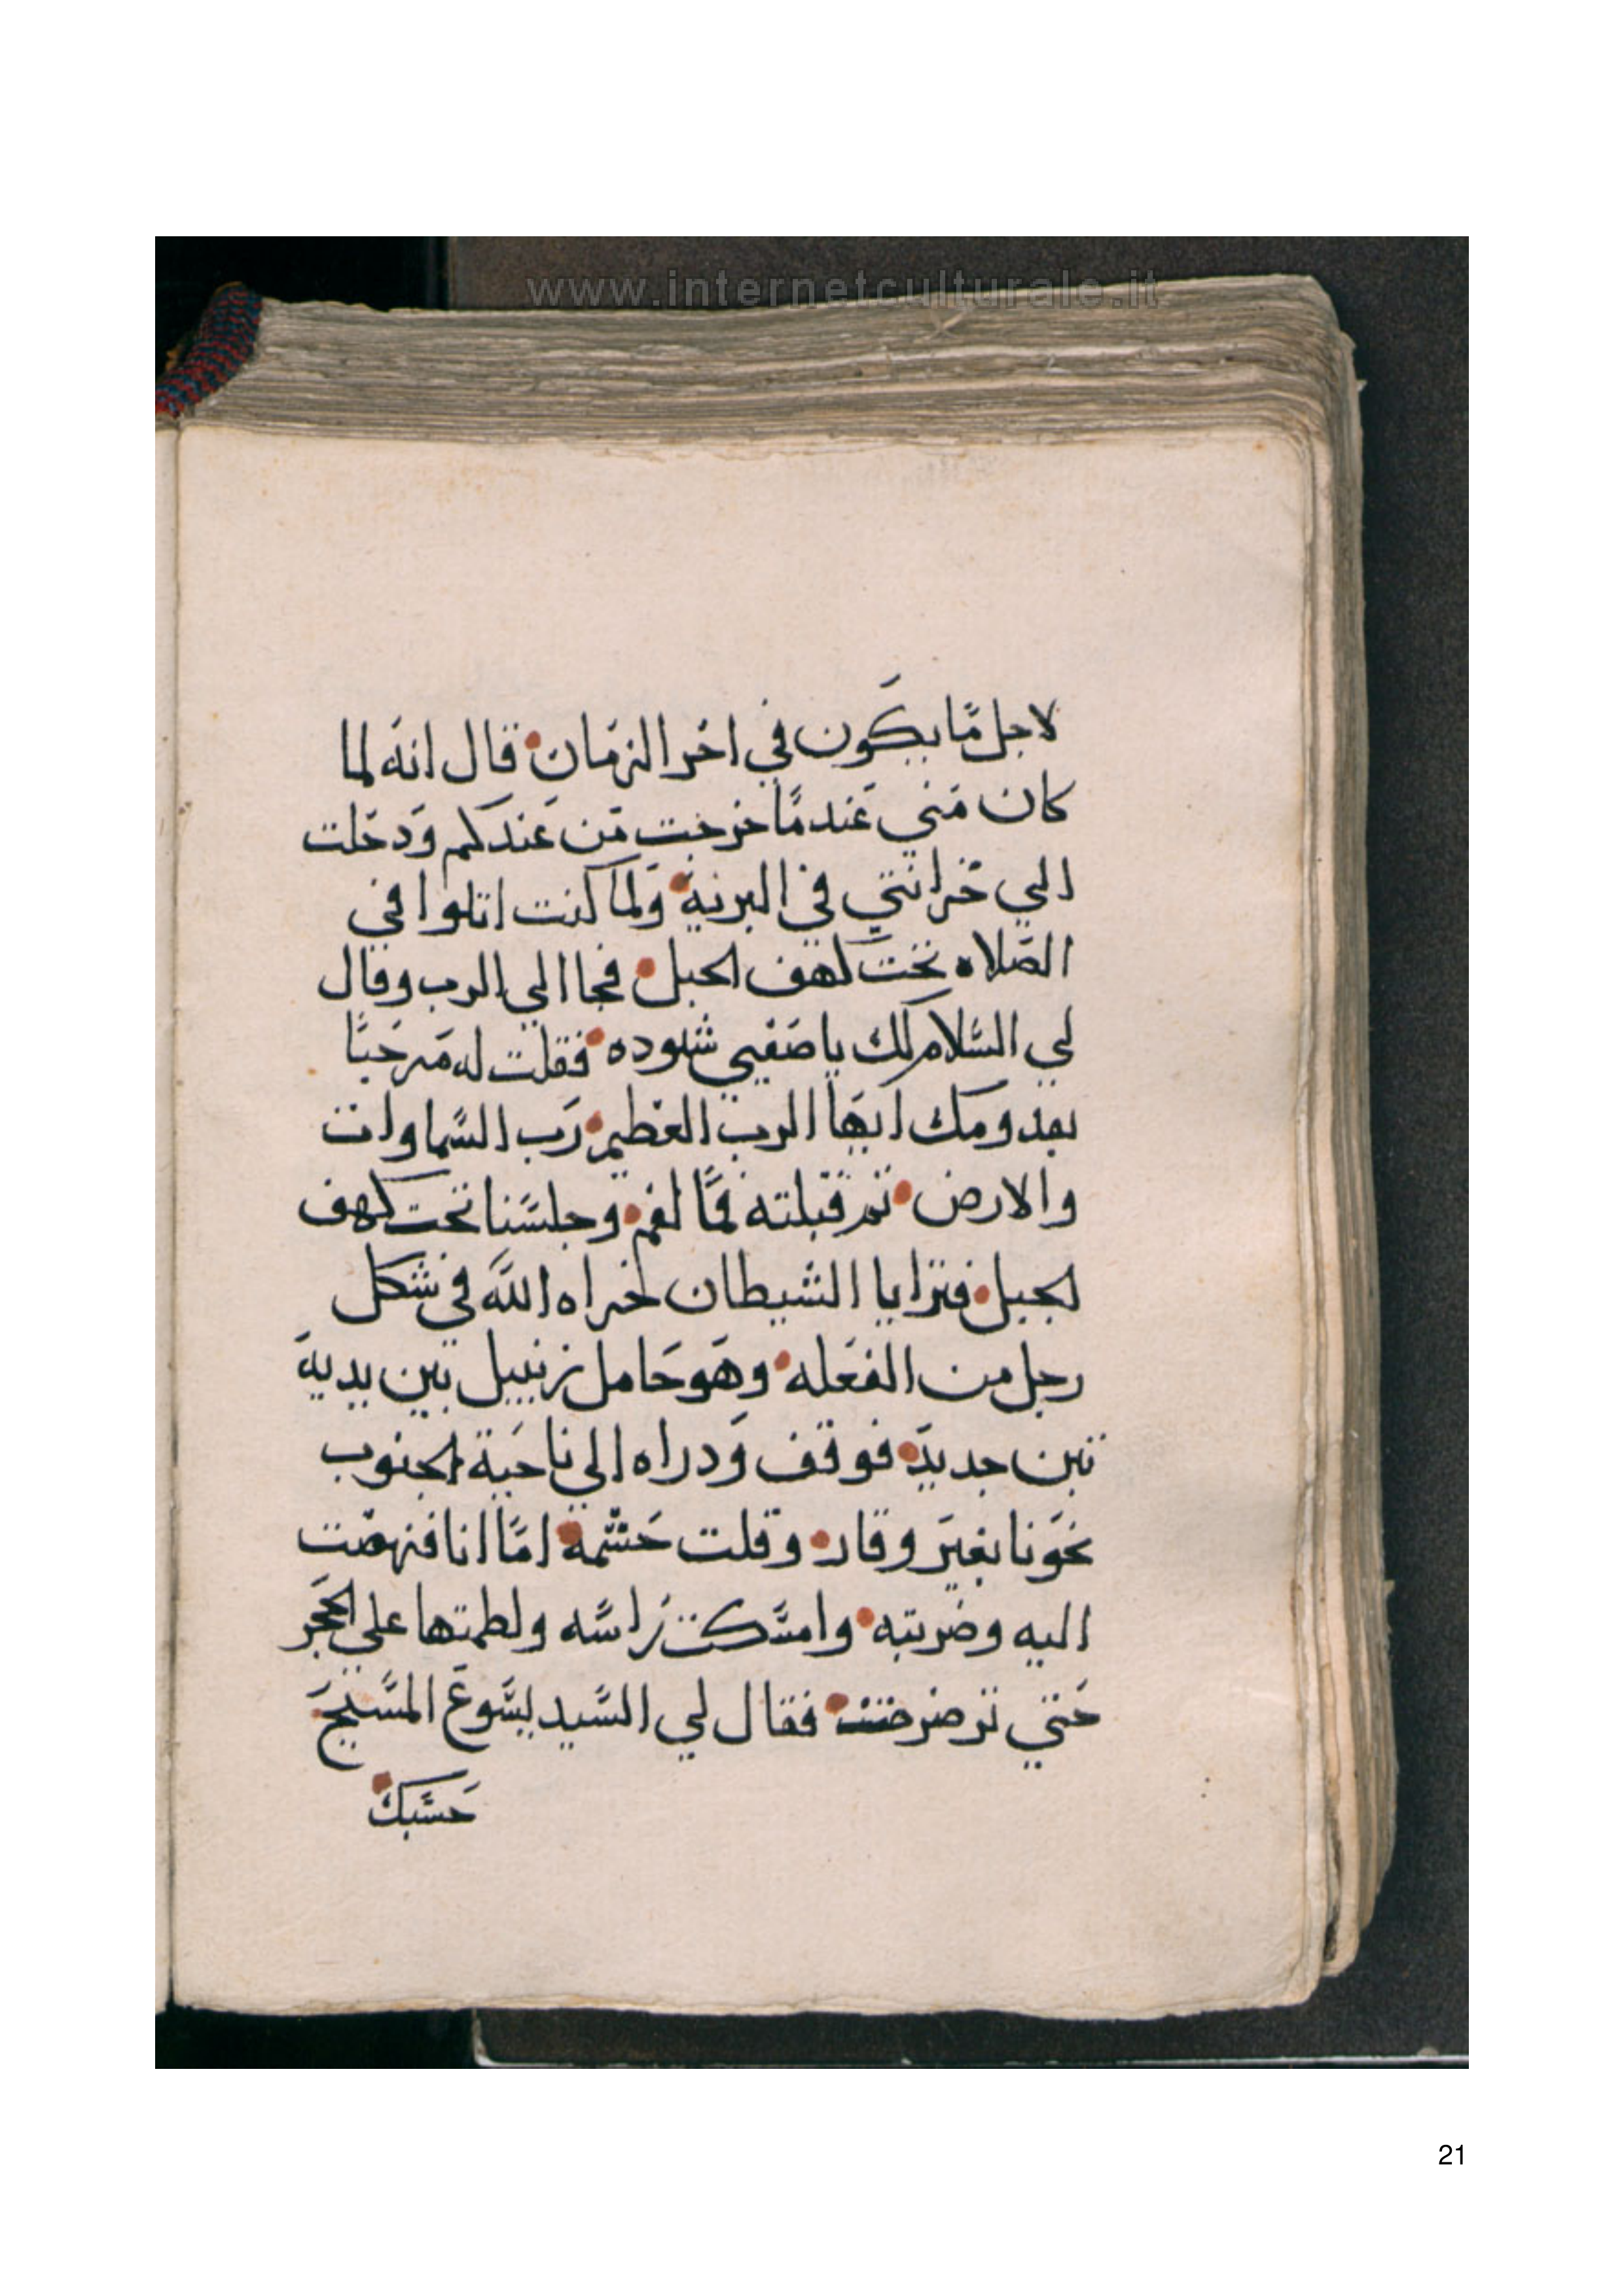 www.internetculturale.it
لاجل ما يكون في اخر الزمان قال انه لما
كان مني عندما خرجت من عندكم ودخلت
الي خزانتي في البرية ولما كنت اتلوا في
الصلاه تحت كهف الجبل فجا الي الرب وقال
لي السلام لك يا صفيي شنوده فقلت له مرحبا
بقدومك ايها الرب العظيم رب السماوات
والارض ثم قبلته فما لفم وجلسنا تحت كهف
الجبل فترايا الشيطان اخزاه الله في شكل
رجل من الفعله وهو حامل زنبيل بين يدية
تبن جديد فوقف ودراه الي ناحية الجنوب
نحونا بغير وقار وقلت حشمة اما انا فنهضت
اليه وضربته وامسكت راسه ولطمتها علي الحجر
حتي ترضرضت فقال لي السيد يسوع المسيح
حسبك
21